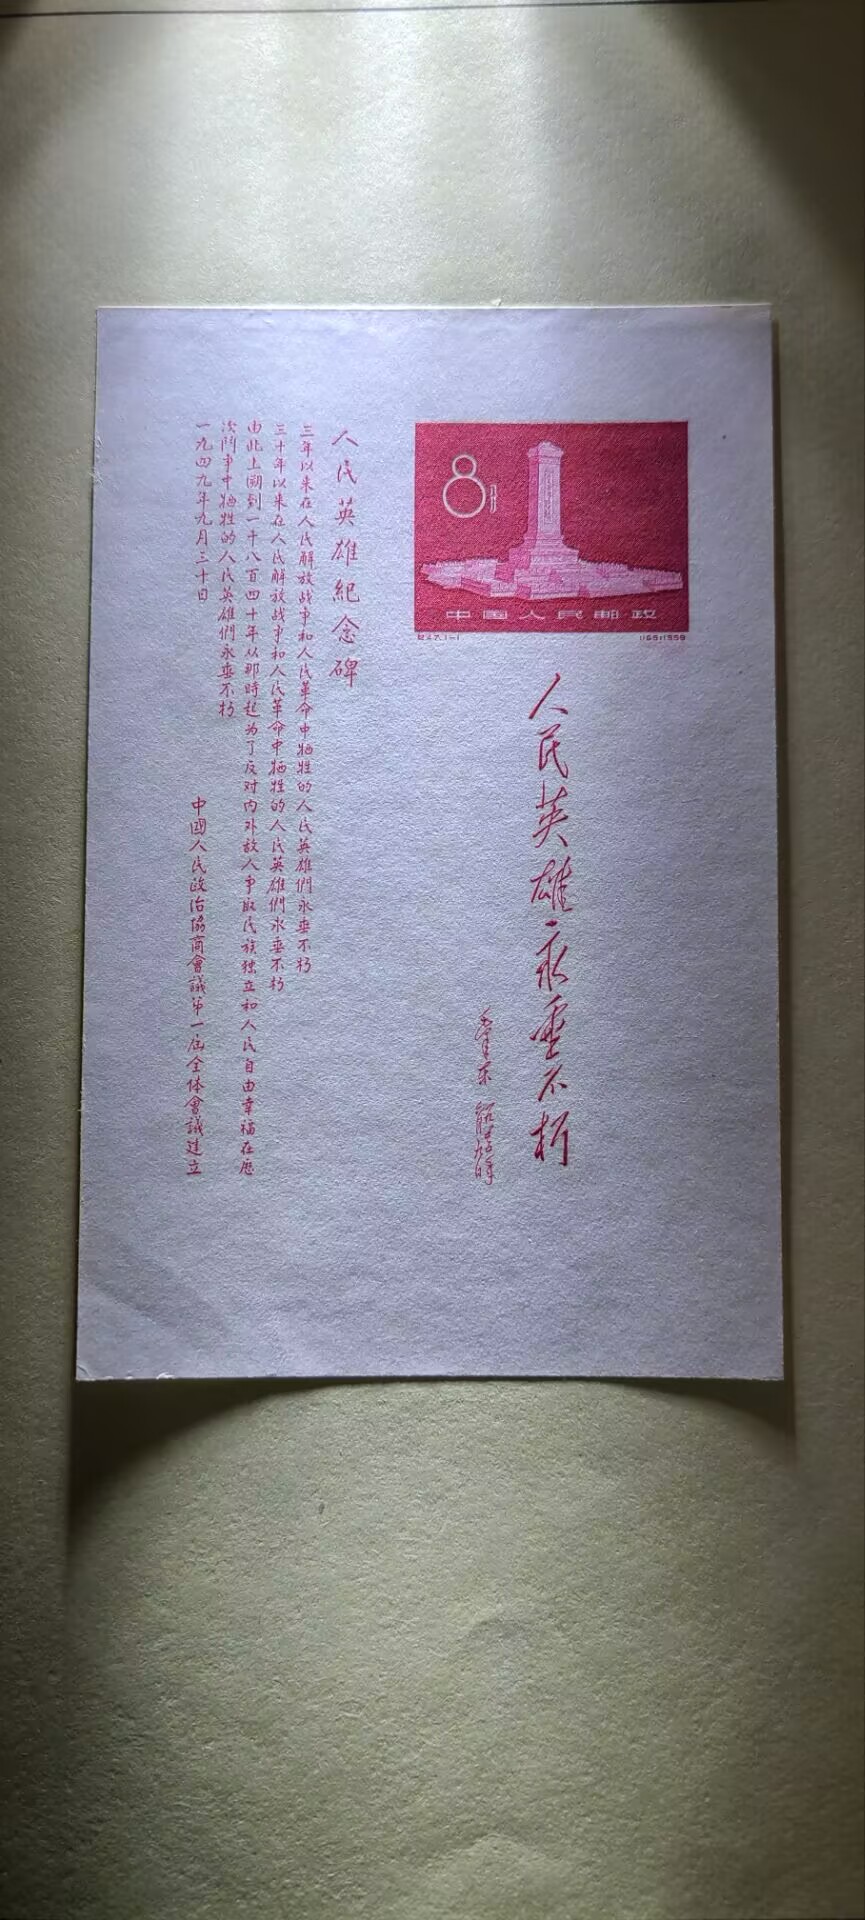 8分
中国人民邮政
纪47.1-1
(165)1958
人民英雄永垂不朽
毛泽东
人民英雄紀念碑
三年以来在人民解放战争和人民革命中牺牲的人民英雄們永垂不朽
三十年以来在人民解放战争和人民革命中牺牲的人民英雄們永垂不朽
由此上溯到一千八百四十年从那時起为了反对内外敌人争取民族独立和人民自由幸福在历
次鬥争中牺牲的人民英雄們永垂不朽
一九四九年九月三十日
中國人民政治協商會議第一届全体會議建立